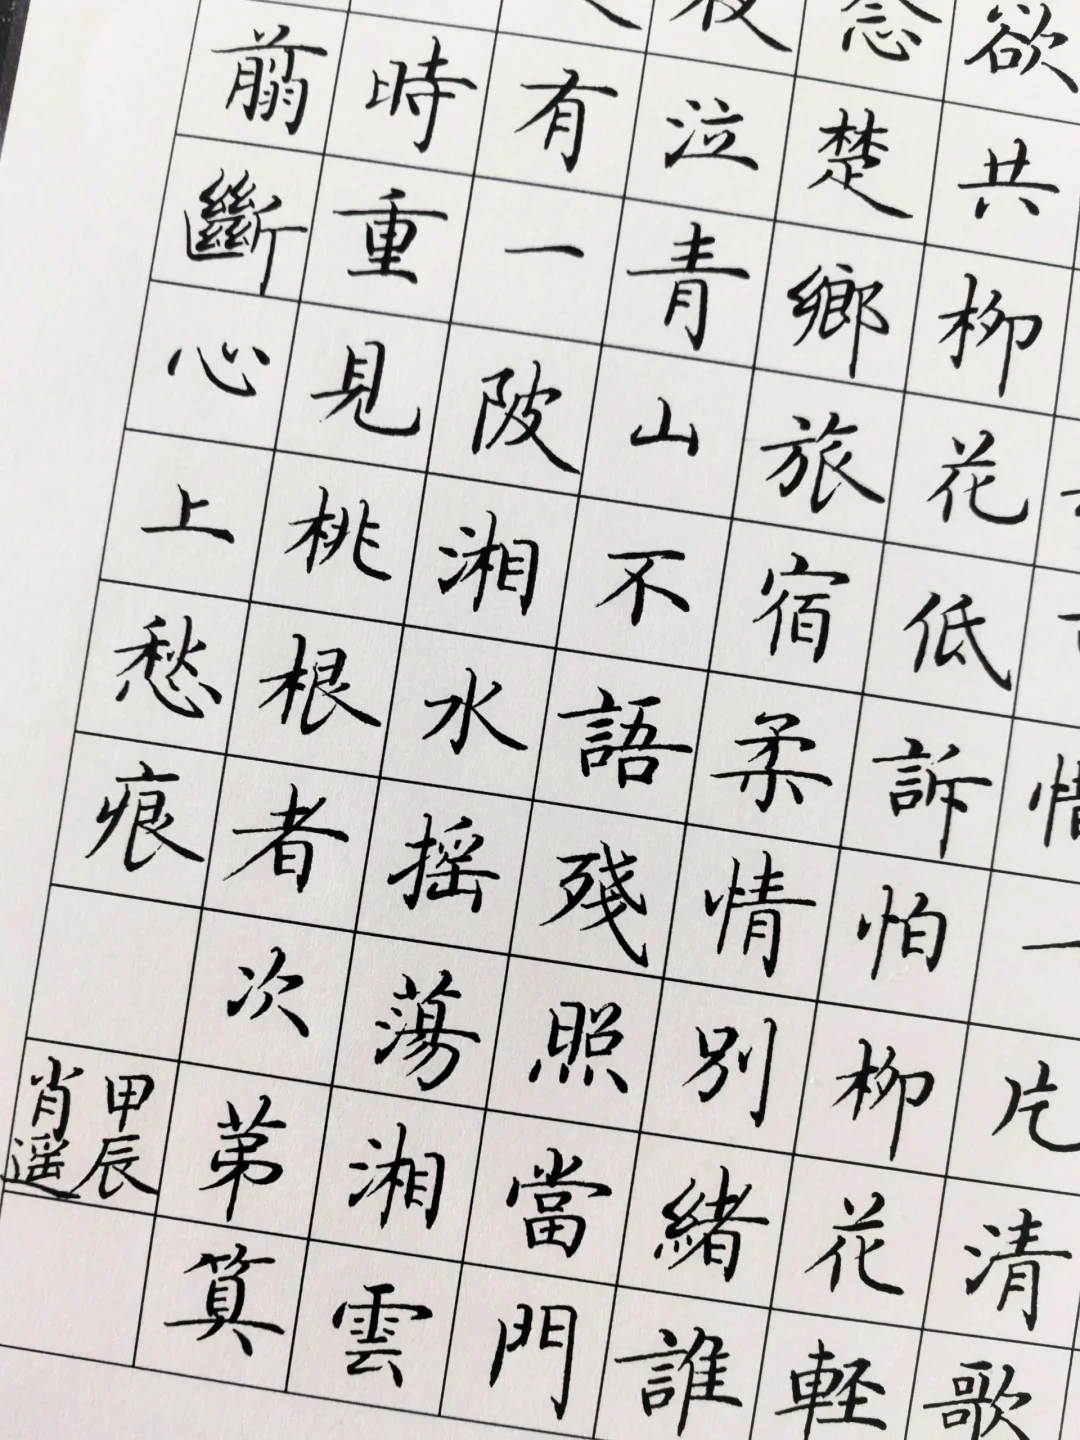 欲共柳花低訴怕柳花輕
念楚鄉旅宿柔情別緒誰
泣青山不語殘照當門
有一陂湘水摇蕩湘雲
時重見桃根者次第算
翦斷心上愁痕
甲辰
肖遥
一片清歌